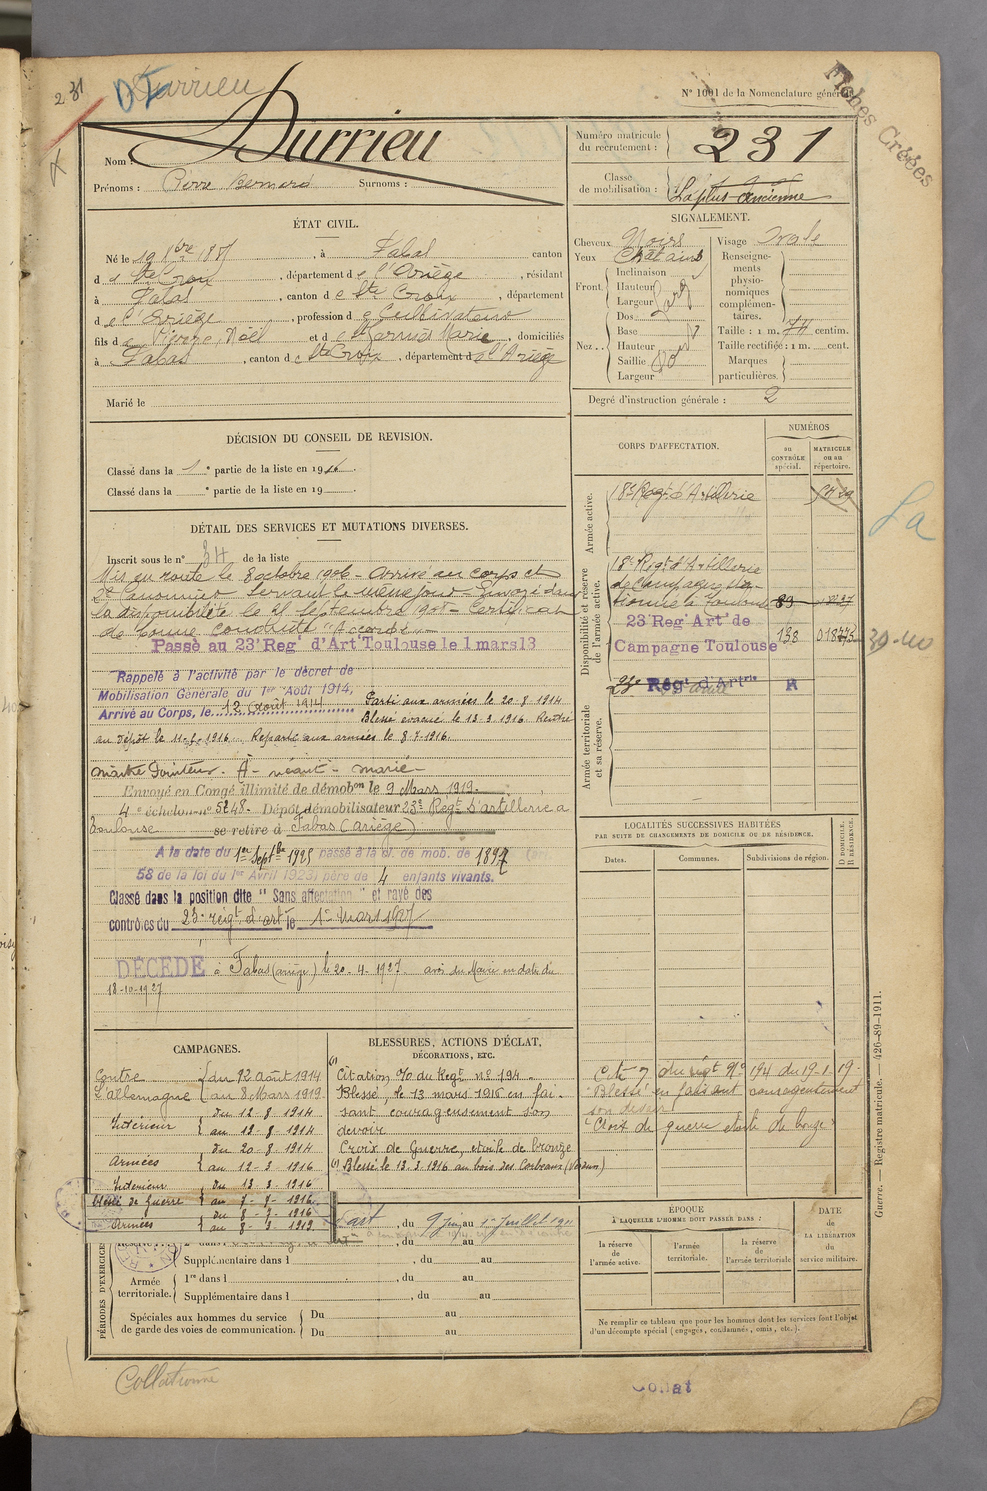 231
Durrieu
N° 1001 de la Nomenclature générale
Fiches Créées
Nom : Durrieu
Prénoms : Pierre Bernard Surnoms :
Numéro matricule du recrutement : 231
Classe de mobilisation : La plus ancienne
ÉTAT CIVIL.
Né le 19 , à Fabas canton
d e Ste Croix , département d e l'Ariège , résidant
à Fabas , canton d e Ste Croix , département
d e l'Ariège , profession d e Cultivateur
fils d e Pierre, Noël et d e Marie , domiciliés
à Fabas , canton d e Ste Croix , département d e l'Ariège
Marié le
SIGNALEMENT.
Cheveux Noirs
Yeux Chatains
Front.
Inclinaison
Hauteur
Largeur
Nez..
Dos
Base
Hauteur
Saillie
Largeur
Visage Ovale
Renseigne-
ments
physio-
nomiques
complémen-
taires.
Taille : 1 m. 74 centim.
Taille rectifiée : 1 m. cent.
Marques
particulières.
Degré d'instruction générale : 2
DÉCISION DU CONSEIL DE REVISION.
Classé dans la 1 e partie de la liste en 19
Classé dans la e partie de la liste en 19
DÉTAIL DES SERVICES ET MUTATIONS DIVERSES.
Inscrit sous le n° 34 de la liste
Mis en route le 8 octobre 1906 - Arrivé au corps et
2e Canonnier Servant le même jour - Envoyé dans
la disponibilité le 25 Septembre 1908 - Certificat
de bonne conduite "Accordé"
Passé au 23e Regt d'Art Toulouse le 1 mars 13
Rappelé à l'activité par le décret de
Mobilisation Generale du 1er Août 1914,
Arrivé au Corps, le 12 Août 1914 Parti aux armées le 20-8-1914
Blessé évacué le 13-3-1916. Rentré
au dépôt le 1916. Reparti aux armées le 8-7-1916.
Maitre Pointeur. A - néant - marié -
Envoyé en Congé illimité de démobon le 9 Mars 1919.
4 e échelon n° 5248. Dépôt démobilisateur 23e Regt d'artillerie a
Toulouse se retire à Fabas (Ariège)
A la date du 1er Septbre 1925 passé à la cl. de mob. de 1897
58 de la loi du 1er Avril 1923, père de 4 enfants vivants.
Classé dans la position dite "Sans affectation" et rayé des
contrôles du 23e régt d'art le 1er mars 1927
DÉCÉDÉ à Fabas (ariège) le 20-4-1927 avis du Maire en date du
18-10-1927
CORPS D'AFFECTATION.
NUMÉROS
au CONTRÔLE spécial.
MATRICULE ou au répertoire.
Armée active.
18e Regt d'Artillerie
Disponibilité et réserve de l'armée active.
18e Régt d'Artillerie
de Campagne
à Toulouse 89
23 Regt Art de
Campagne Toulouse 138
Armée territoriale et sa réserve.
23e Régt d'Artrie
La
LOCALITÉS SUCCESSIVES HABITÉES
PAR SUITE DE CHANGEMENTS DE DOMICILE OU DE RÉSIDENCE.
Dates.
Communes.
Subdivisions de région.
D DOMICILE.
R RÉSIDENCE.
CAMPAGNES.
Contre l'allemagne { du 12 Août 1914
au 8 Mars 1919
Intérieur { du 12-8-1914
au 19-8-1914
Armées { du 20-8-1914
au 12-3-1916
Intérieur du 13-3-1916
blessé de guerre { au 7-7-1916
Armées { du 8-7-1916
au 8-3-1919
BLESSURES, ACTIONS D'ÉCLAT,
DÉCORATIONS, ETC.
Citation /O du Regt n° 194
Blessé, le 13 mars 1916 en fai-
sant courageusement son
devoir
Croix de Guerre, etoile de bronze
(1) Blessé le 13-3-1916 au bois des Corbeaux (Verdun)
du régt N° 194 du 19-1-19-
"Blessé en faisant courageusement
son devoir"
Croix de guerre étoile de bronze
PÉRIODES D'EXERCICES
, du 9 Juin au 1er Juillet 1911
, du au
Supplémentaire dans l , du au
Armée territoriale.
1re dans l , du au
Supplémentaire dans l , du au
Spéciales aux hommes du service
de garde des voies de communication.
Du au
Du au
ÉPOQUE
À LAQUELLE L'HOMME DOIT PASSER DANS :
la réserve de l'armée active.
l'armée territoriale.
la réserve de l'armée territoriale
DATE de LA LIBÉRATION du service militaire.
Ne remplir ce tableau que pour les hommes dont les services font l'objet
d'un décompte spécial (engagés, condamnés, omis, etc.).
Guerre. — Registre matricule. — 426-89-1911.
Collationné
Collat